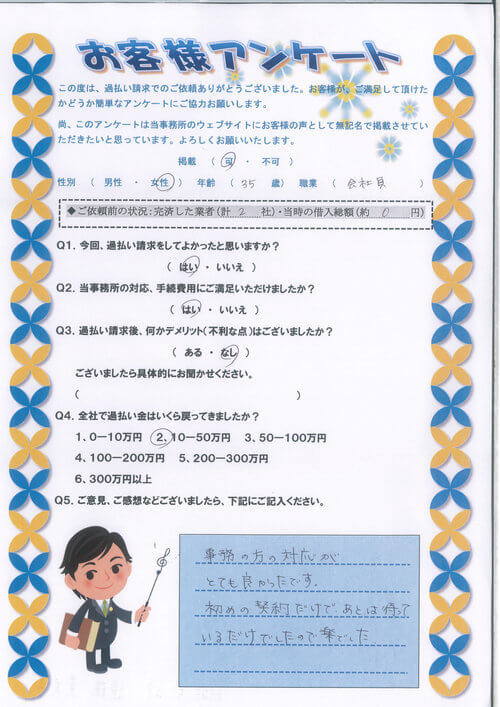 お客様アンケート
この度は、過払い請求でのご依頼ありがとうございました。お客様が、ご満足して頂けた
かどうか簡単なアンケートにご協力お願いします。
尚、このアンケートは当事務所のウェブサイトにお客様の声として無記名で掲載させてい
ただきたいと思っています。よろしくお願いいたします。
掲載 ( 可 ・ 不可 )
性別 ( 男性 ・ 女性 ) 年齢 ( 35 歳) 職業 ( 会社員 )
◆ご依頼前の状況:完済した業者(計 2 社)・当時の借入総額(約 0 円)
Q1. 今回、過払い請求をしてよかったと思いますか?
( はい ・ いいえ )
Q2. 当事務所の対応、手続費用にご満足いただけましたか?
( はい ・ いいえ )
Q3. 過払い請求後、何かデメリット(不利な点)はございましたか?
( ある ・ なし )
ございましたら具体的にお聞かせください。
( )
Q4. 全社で過払い金はいくら戻ってきましたか?
1、0－10万円 2、10－50万円 3、50－100万円
4、100－200万円 5、200－300万円
6、300万円以上
Q5. ご意見、ご感想などございましたら、下記にご記入ください。
事務の方の対応が
とても良かったです.
初めの契約だけで、あとは待って
いるだけでしたので楽でした